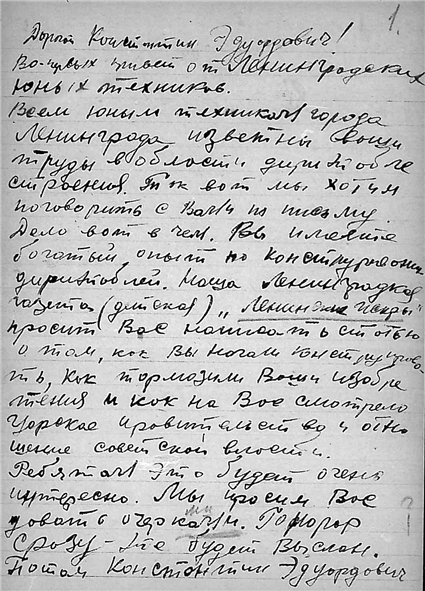 1.
Дорогой Константин Эдуардович!
Во-первых привет от Ленинградских
юных техников.
Всем юным техникам города
Ленинграда известны Ваши
труды в области дирижабле
строения. Так вот мы хотим
поговорить с Вами по письму.
Дело вот в чем. Вы имеете
богатый опыт по конструированию
дирижаблей. Наша Ленинградская
газета (детская) „Ленинские Искры"
просит Вас написать статью
о том, как Вы начали конструирова
ть, как тормозили Ваши изобре
тения и как на Вас смотрело
Царское правительство и отно
шение советской власти.
Ребятам это будет очень
интересно. Мы просим Вас
давать очерками. Гонорар
сразу-же будет выслан.
Потом Константин Эдуардович